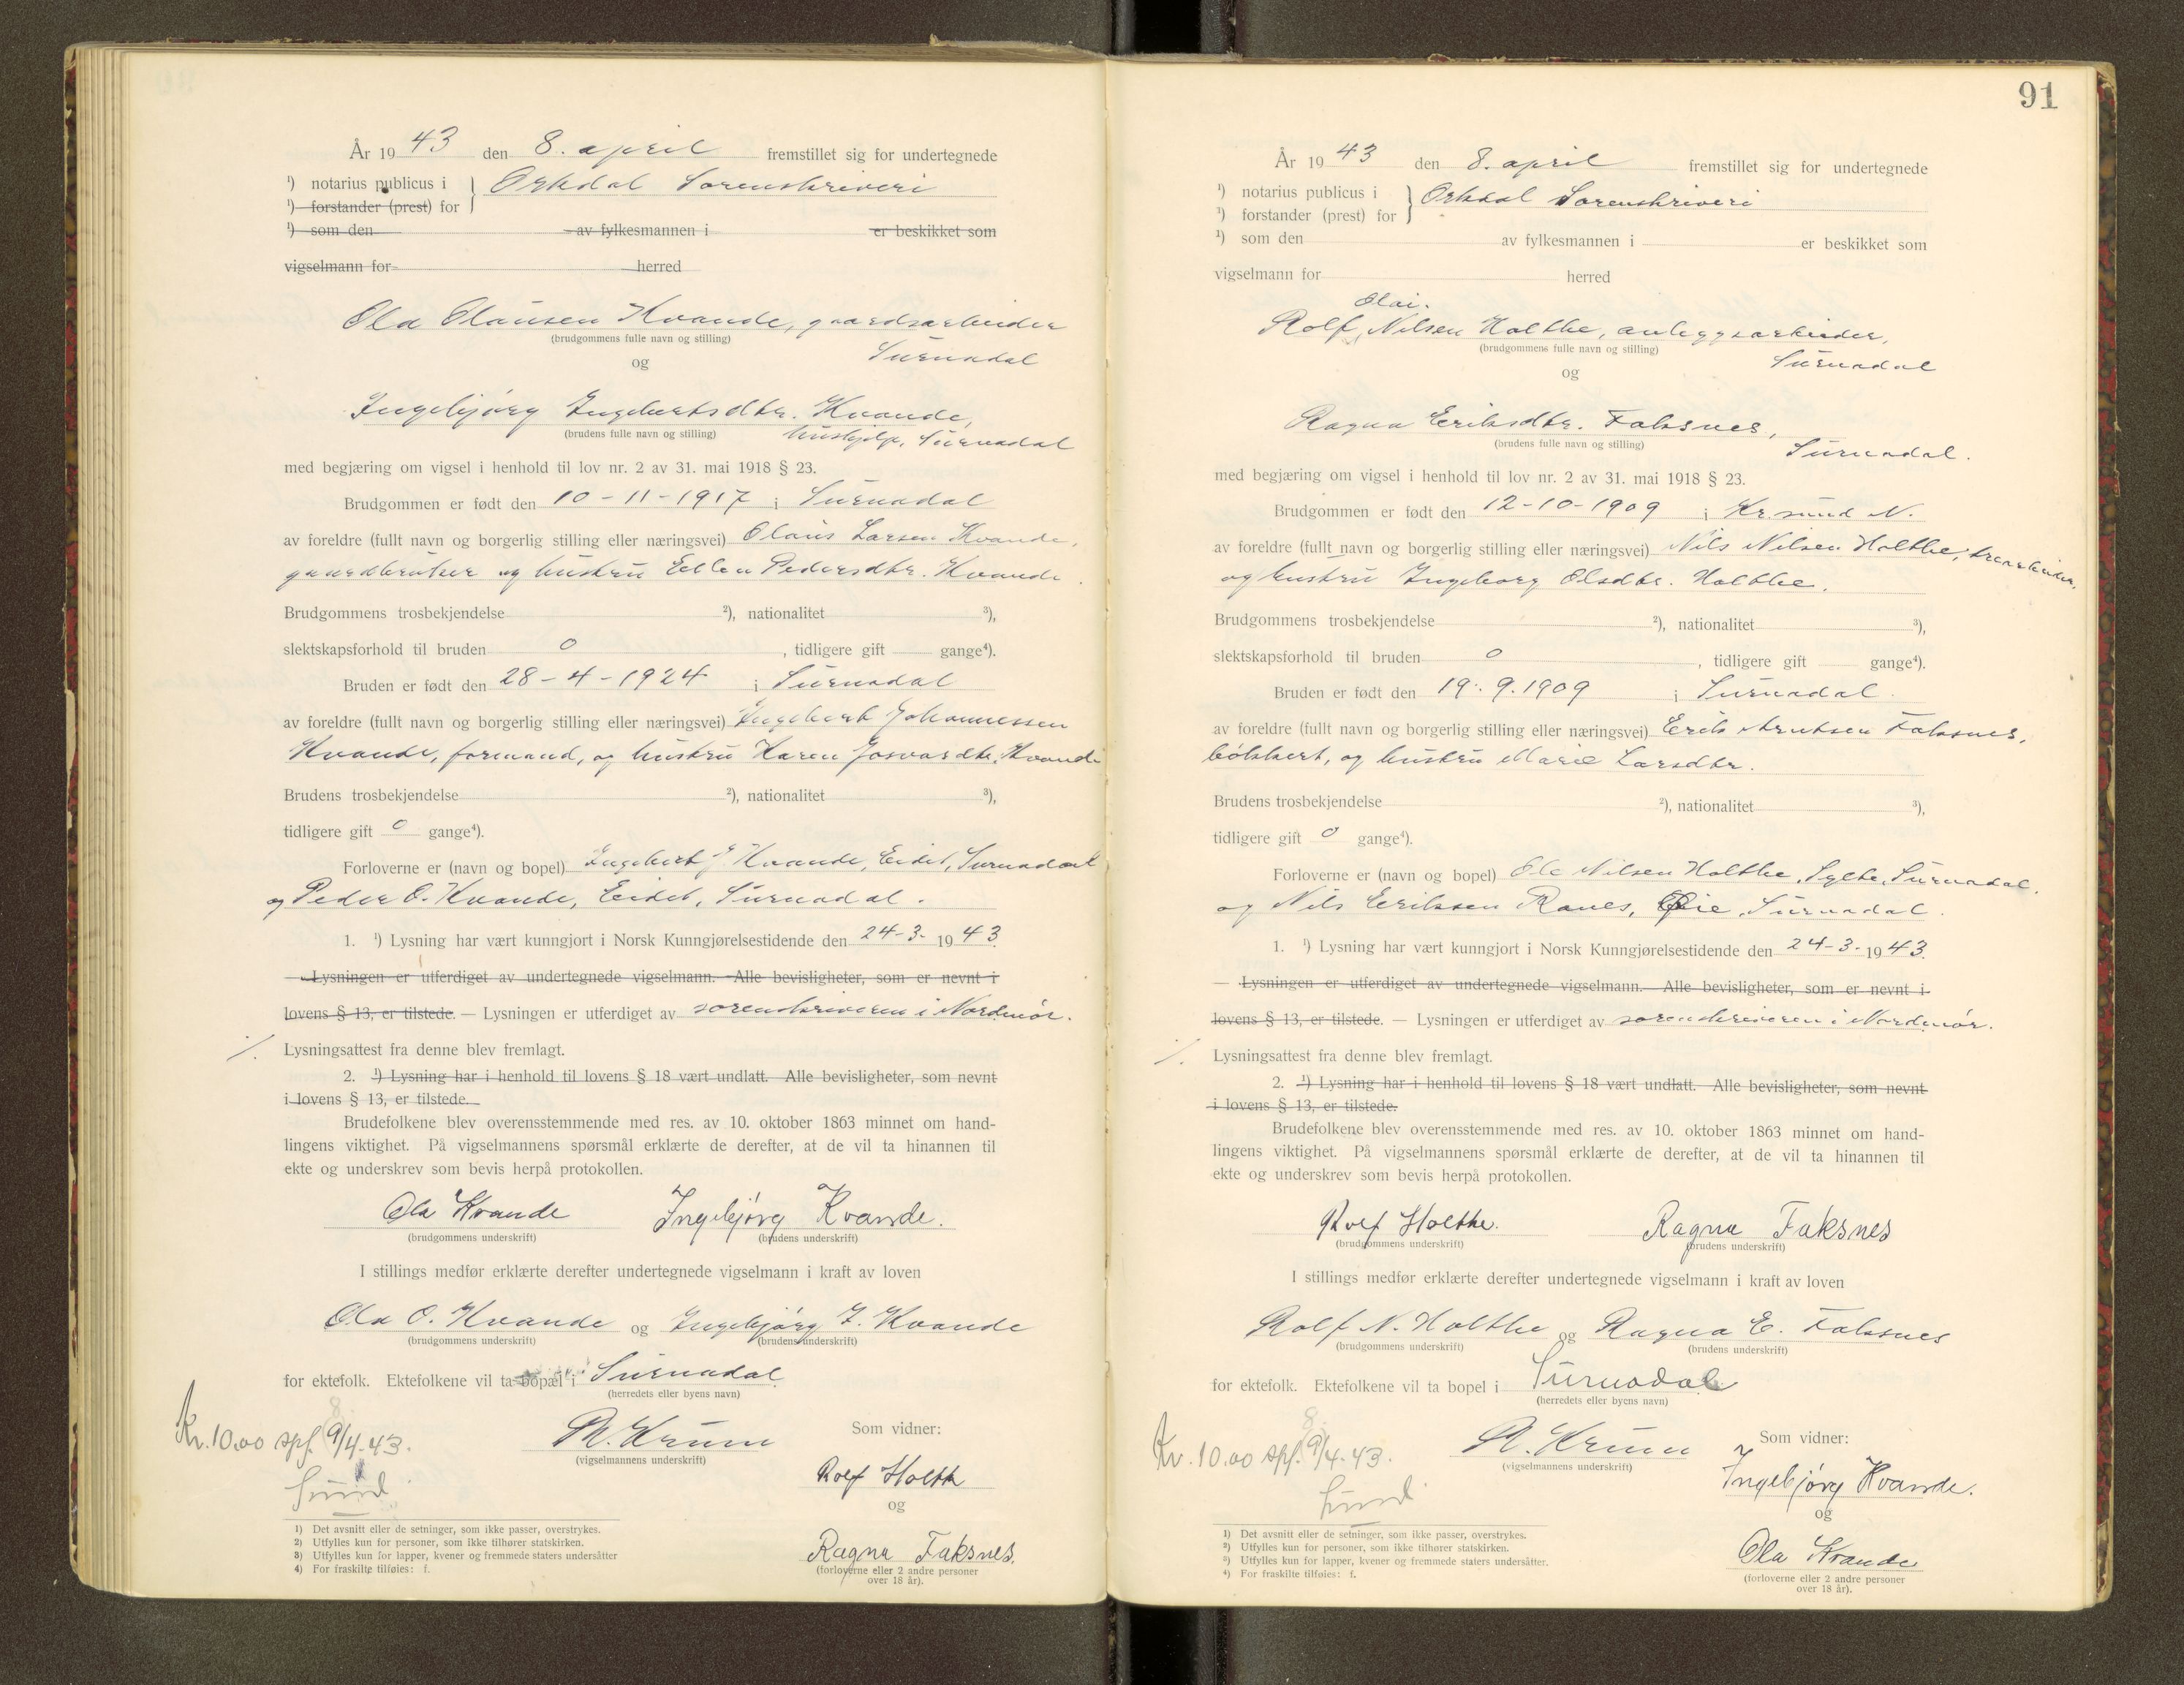 År 1943 den 8. april fremstillet sig for undertegnede
¹) notarius publicus i } Orkdal Sorenskriveri
¹) forstander (prest) for
¹) som den av fylkesmannen i er beskikket som
vigselmann for herred
Ola Olausen Kvande, gaardsarbeider
(brudgommens fulle navn og stilling)
Surnadal
og
Ingebjørg Ingebertsdtr. Kvande,
(brudens fulle navn og stilling) hushjelp, Surnadal
med begjæring om vigsel i henhold til lov nr. 2 av 31. mai 1918 § 23.
Brudgommen er født den 10-11-1917 i Surnadal
av foreldre (fullt navn og borgerlig stilling eller næringsvei) Olaus Larsen Kvande,
gaardbruker og hustru Ellen Pedersdtr. Kvande.
Brudgommens trosbekjendelse ²), nationalitet ³),
slektskapsforhold til bruden 0 , tidligere gift gange⁴).
Bruden er født den 28-4-1924 i Surnadal
av foreldre (fullt navn og borgerlig stilling eller næringsvei) Ingebert Johannessen
Kvande, formand, og hustru Karen Josvardtr. Kvande
Brudens trosbekjendelse ²), nationalitet ³),
tidligere gift 0 gange⁴).
Forloverne er (navn og bopel) Ingebert J. Kvande, Eidet, Surnadal
og Peder O. Kvande, Eidet, Surnadal.
1. ¹) Lysning har vært kunngjort i Norsk Kunngjørelsestidende den 24-3-1943.
— Lysningen er utferdiget av undertegnede vigselmann. Alle bevisligheter, som er nevnt i
lovens § 13, er tilstede. — Lysningen er utferdiget av sorenskriveren i Nordmør.
⁒ Lysningsattest fra denne blev fremlagt.
2. ¹) Lysning har i henhold til lovens § 18 vært undlatt. Alle bevisligheter, som nevnt
i lovens § 13, er tilstede.
Brudefolkene blev overensstemmende med res. av 10. oktober 1863 minnet om hand-
lingens viktighet. På vigselmannens spørsmål erklærte de derefter, at de vil ta hinannen til
ekte og underskrev som bevis herpå protokollen.
Ola Kvande Ingebjørg Kvande.
(brudgommens underskrift) (brudens underskrift)
I stillings medfør erklærte derefter undertegnede vigselmann i kraft av loven
Ola O. Kvande og Ingebjørg I. Kvande
(brudgommens underskrift) (brudens underskrift)
for ektefolk. Ektefolkene vil ta bopæl i Surnadal
(herredets eller byens navn)
8.
Kr. 10.00 spf. 9/4-43.
Krum
(vigselmannens underskrift)
Som vidner:
Rolf Holth
og
Ragna Faksnes.
(forloverne eller 2 andre personer
over 18 år).
1) Det avsnitt eller de setninger, som ikke passer, overstrykes.
2) Utfylles kun for personer, som ikke tilhører statskirken.
3) Utfylles kun for lapper, kvener og fremmede staters undersåtter
4) For fraskilte tilføies: f.
91
År 1943 den 8. april fremstillet sig for undertegnede
¹) notarius publicus i } Orkdal Sorenskriveri
¹) forstander (prest) for
¹) som den av fylkesmannen i er beskikket som
vigselmann for herred
Olai.
Rolf, Nilsen Holthe, anleggsarbeider,
(brudgommens fulle navn og stilling)
Surnadal
og
Ragna Eriksdtr. Faksnes,
(brudens fulle navn og stilling)
Surnadal.
med begjæring om vigsel i henhold til lov nr. 2 av 31. mai 1918 § 23.
Brudgommen er født den 12-10-1909 i Kr.sund N.
av foreldre (fullt navn og borgerlig stilling eller næringsvei) Nils Nilsen Holthe,
og hustru Ingeborg Olsdtr. Holthe.
Brudgommens trosbekjendelse ²), nationalitet ³),
slektskapsforhold til bruden 0 , tidligere gift gange⁴).
Bruden er født den 19.9.1909 i Surnadal.
av foreldre (fullt navn og borgerlig stilling eller næringsvei) Erik Arntsen Faksnes,
og hustru Marie Larsdtr.
Brudens trosbekjendelse ²), nationalitet ³),
tidligere gift 0 gange⁴).
Forloverne er (navn og bopel) Ole Nilsen Holthe, Sylte, Surnadal,
og Nils Eriksen Ranes, Øie, Surnadal.
1. ¹) Lysning har vært kunngjort i Norsk Kunngjørelsestidende den 24-3-1943.
— Lysningen er utferdiget av undertegnede vigselmann. Alle bevisligheter, som er nevnt i
lovens § 13, er tilstede. — Lysningen er utferdiget av sorenskriveren i Nordmør.
⁒ Lysningsattest fra denne blev fremlagt.
2. ¹) Lysning har i henhold til lovens § 18 vært undlatt. Alle bevisligheter, som nevnt
i lovens § 13, er tilstede.
Brudefolkene blev overensstemmende med res. av 10. oktober 1863 minnet om hand-
lingens viktighet. På vigselmannens spørsmål erklærte de derefter, at de vil ta hinannen til
ekte og underskrev som bevis herpå protokollen.
Rolf Holthe. Ragna Faksnes
(brudgommens underskrift) (brudens underskrift)
I stillings medfør erklærte derefter undertegnede vigselmann i kraft av loven
Rolf N. Holthe og Ragna E. Faksnes
(brudgommens underskrift) (brudens underskrift)
for ektefolk. Ektefolkene vil ta bopel i Surnadal
(herredets eller byens navn)
8.
Kr. 10.00 spf. 9/4-43.
Krum
(vigselmannens underskrift)
Som vidner:
Ingebjørg Kvande.
og
Ola Kvande
(forloverne eller 2 andre personer
over 18 år).
1) Det avsnitt eller de setninger, som ikke passer, overstrykes.
2) Utfylles kun for personer, som ikke tilhører statskirken.
3) Utfylles kun for lapper, kvener og fremmede staters undersåtter.
4) For fraskilte tilføies: f.